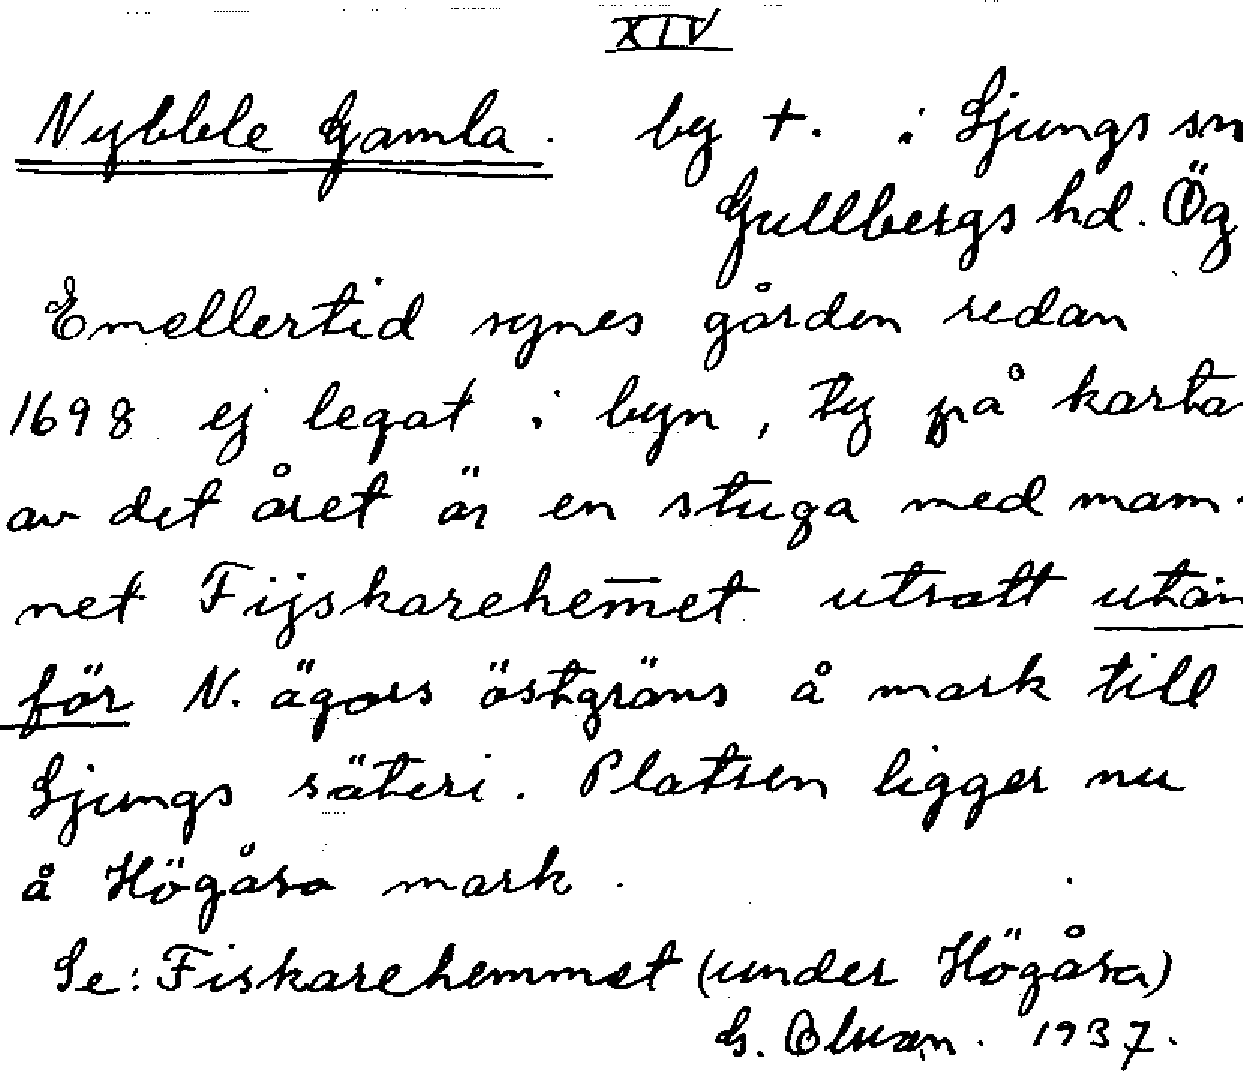 XIV
Nybble Gamla. by +. i Ljungs sn
Gullbergs hd. Ög
Emellertid synes gården redan
1698 ej legat i byn, ty på karta
av det året är en stuga med nam-
net Fijskarehem̅et utsatt utan
för N. ägors östgräns å mark till
Ljungs säteri. Platsen ligger nu
å Högåsa mark.
Se: Fiskarehemmet (under Högåsa)
G. 1937.